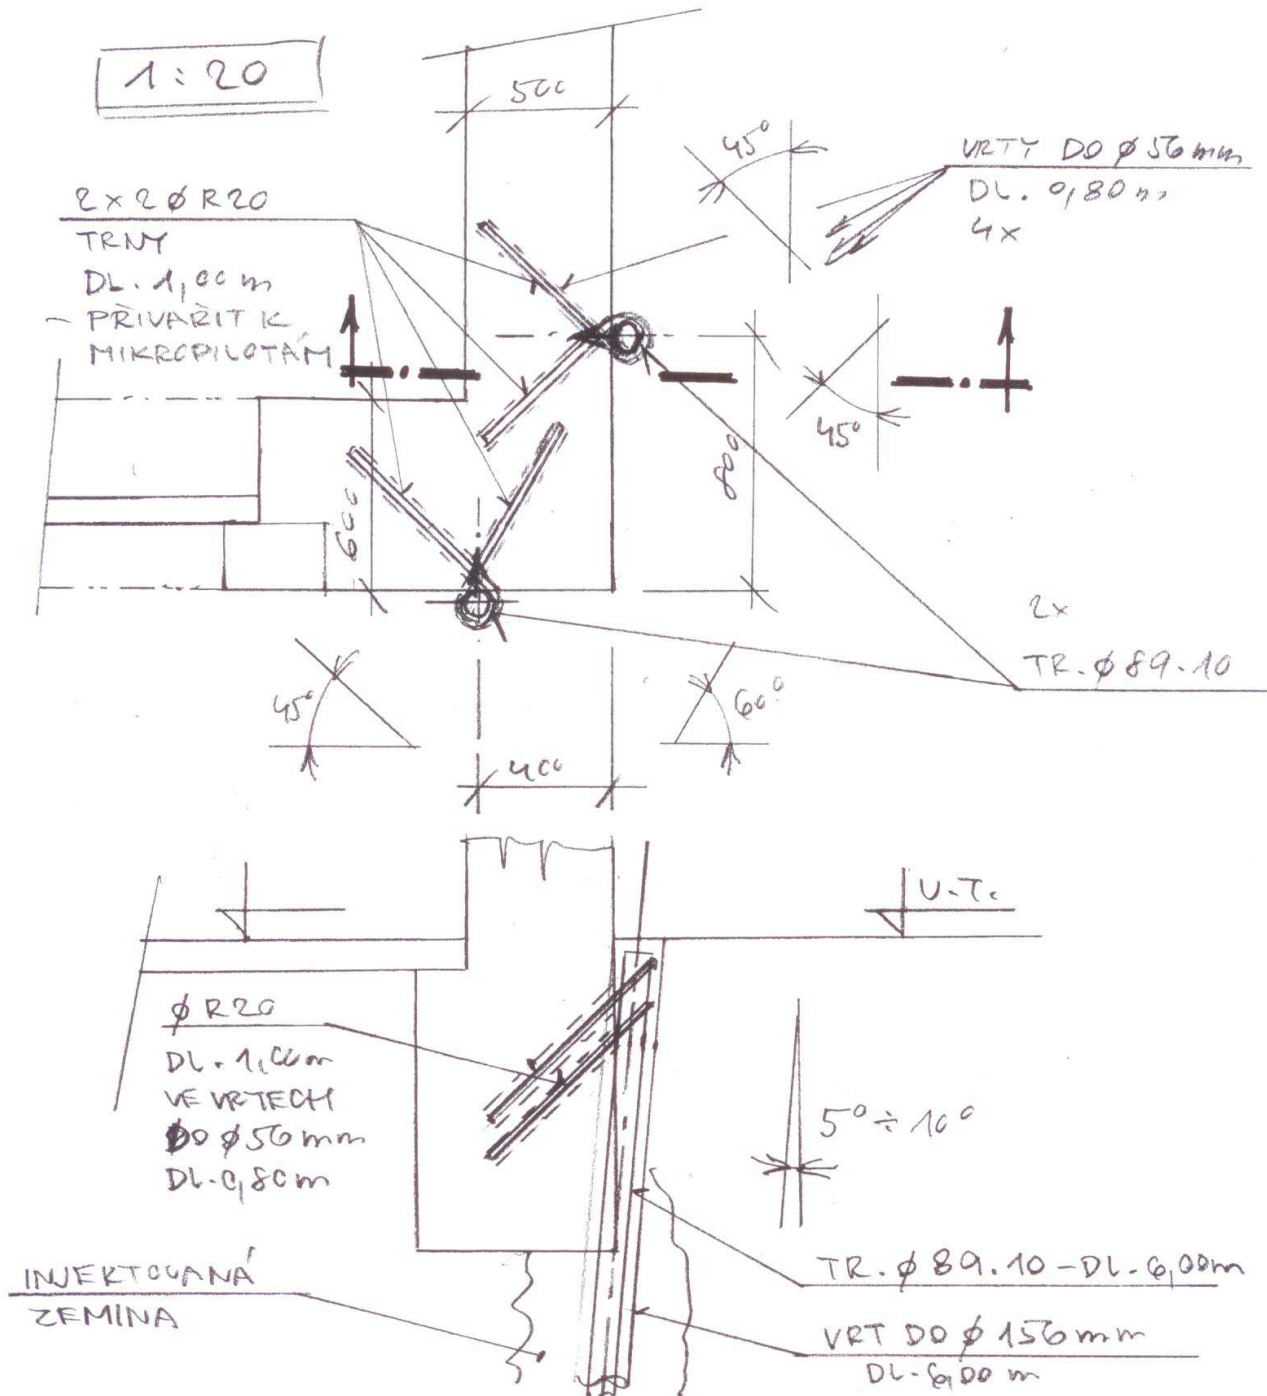 1:20
500
45°
VRTY DO ø 56 mm
DL. 0,80 m
4x
2x2 ø R20
TRNY
DL. 1,00 m
- PŘIVAŘIT K
MIKROPILOTÁM
45°
800
600
2x
TR. ø 89.10
45°
60°
400
U.T.
ø R20
DL. 1,00m
VE VRTECH
DO ø 56 mm
DL. 0,80m
5° ÷ 10°
INJEKTOVANÁ
ZEMINA
TR. ø 89.10 - DL. 6,00m
VRT DO ø 156 mm
DL. 6,00 m